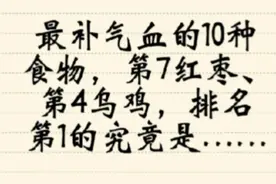 最补气血的10种
食物，第7红枣、
第4乌鸡，排名
第1的究竟是……